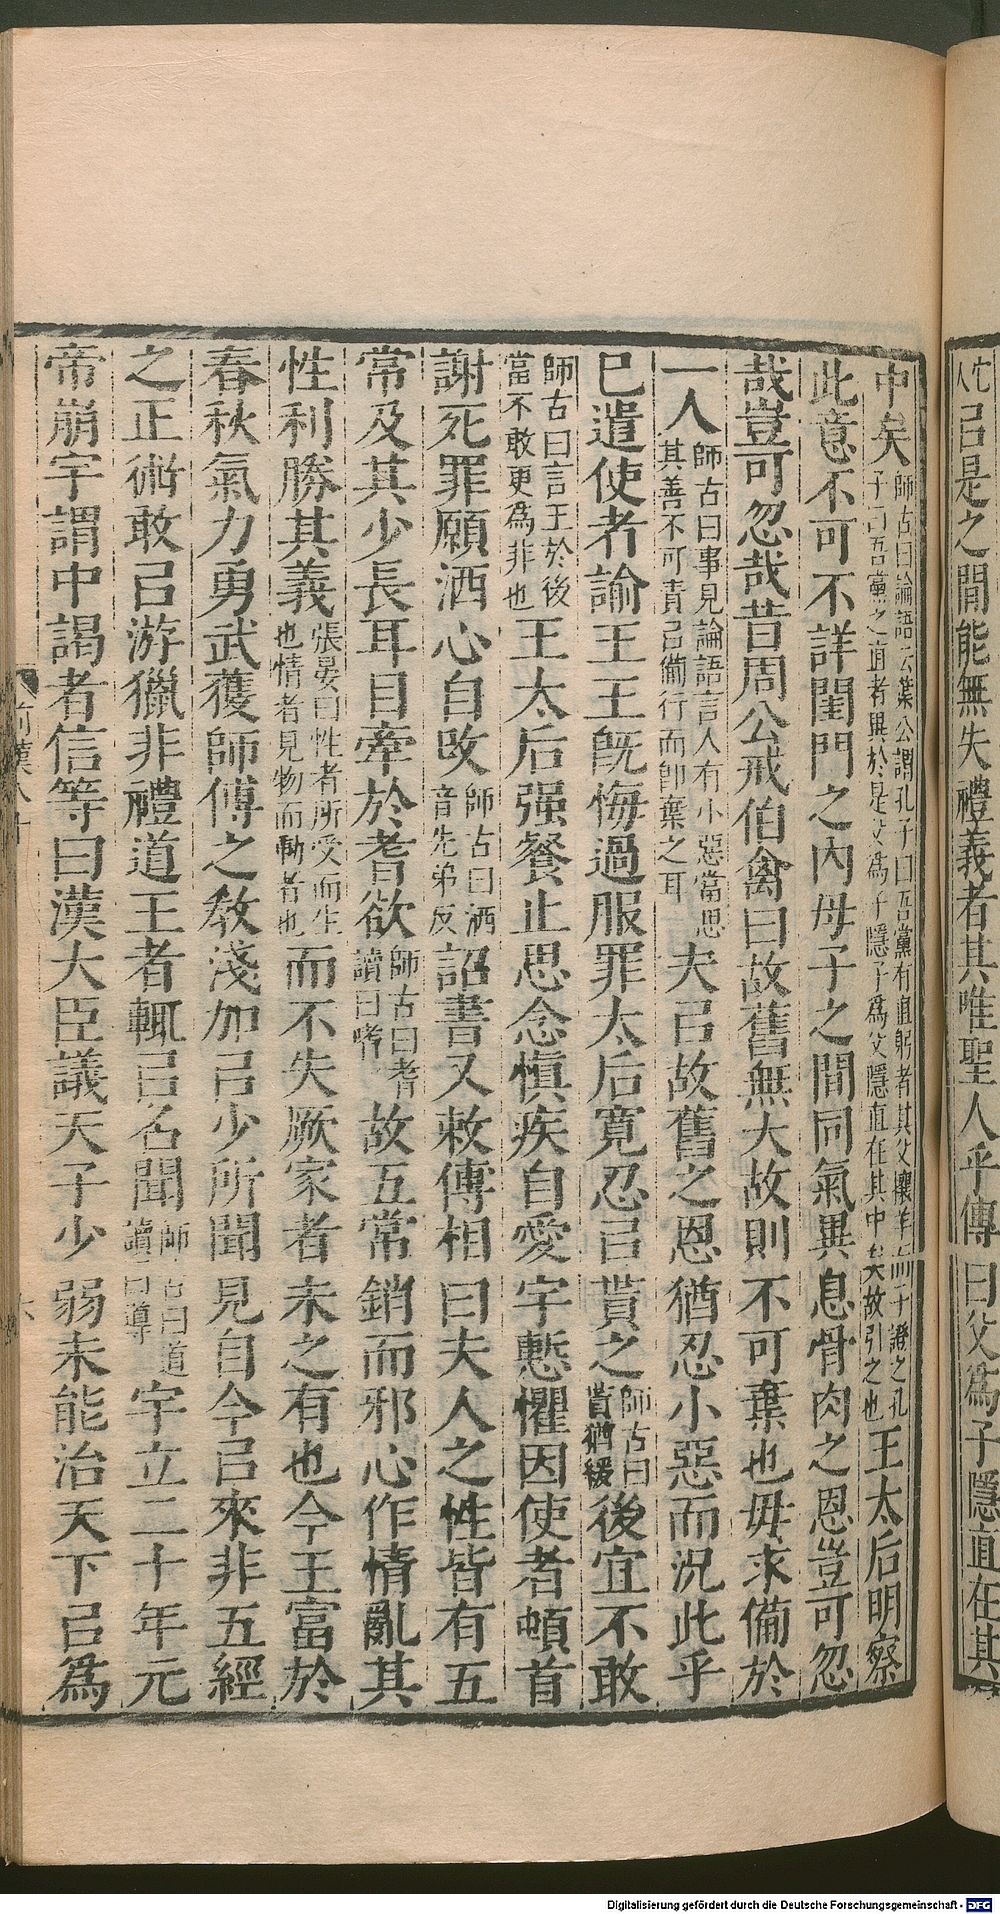 㠯是之間能無失禮義者其唯聖人乎傳曰父爲子隱直在其
中矣師古曰論語云葉公謂孔子曰吾黨有直躬者其父攘羊而子證之孔子曰吾黨之直者異於是父爲子隱子爲父隱直在其中矣故引之也王太后明察
此意不可不詳閨門之內母子之間同氣異息骨肉之恩豈可忽
哉豈可忽哉昔周公戒伯禽曰故舊無大故則不可棄也毋求備於
一人師古曰事見論語言人有小惡當思其善不可責㠯備行而卽棄之耳夫㠯故舊之恩猶忍小惡而況此乎
已遣使者諭王王旣悔過服罪太后寛忍㠯貰之師古曰貰猶緩後宜不敢
師古曰言王於後當不敢更爲非也王太后强餐止思念愼疾自愛宇慙懼因使者頓首
謝死罪願洒心自改師古曰洒音先弟反詔書又敕傅相曰夫人之性皆有五
常及其少長耳目牽於耆欲師古曰耆讀曰嗜故五常銷而邪心作情亂其
性利勝其義張晏曰性者所受而生也情者見物而動者也而不失厥家者未之有也今王富於
春秋氣力勇武獲師傅之敎淺加㠯少所聞見自今㠯來非五經
之正術敢㠯游獵非禮道王者輒㠯名聞師古曰道讀曰導宇立二十年元
帝崩宇謂中謁者信等曰漢大臣議天子少弱未能治天下㠯爲
前漢八十
Digitalisierung gefördert durch die Deutsche Forschungsgemeinschaft - DFG